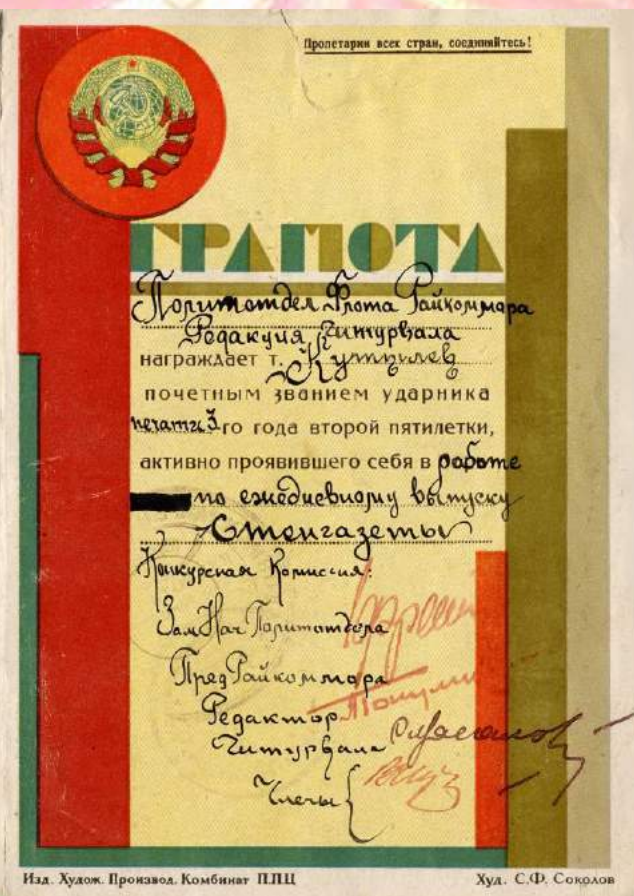 Пролетарии всех стран, соединяйтесь!
ГРАМОТА
Политотдел Флота Райкоммора
Редакция
награждает т.
почетным званием ударника
печати 3го года второй пятилетки,
активно проявившего себя в работе
по ежедневному выпуску
Стенгазеты
Конкурсная Комиссия:
Зам Нач Политотдела
Пред Райкоммора
Редактор
Члены {
Изд. Худож. Производ. Комбинат П.П.Ц
Худ. С.Ф. Соколов